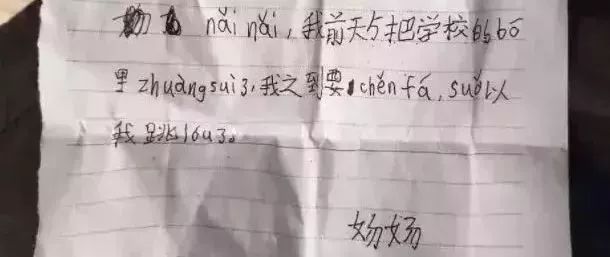 nǎi nǎi，我前天把学校的bō
里zhuàngsuì了，我之到要chěnfá，suǒ以
我跳lóu了。